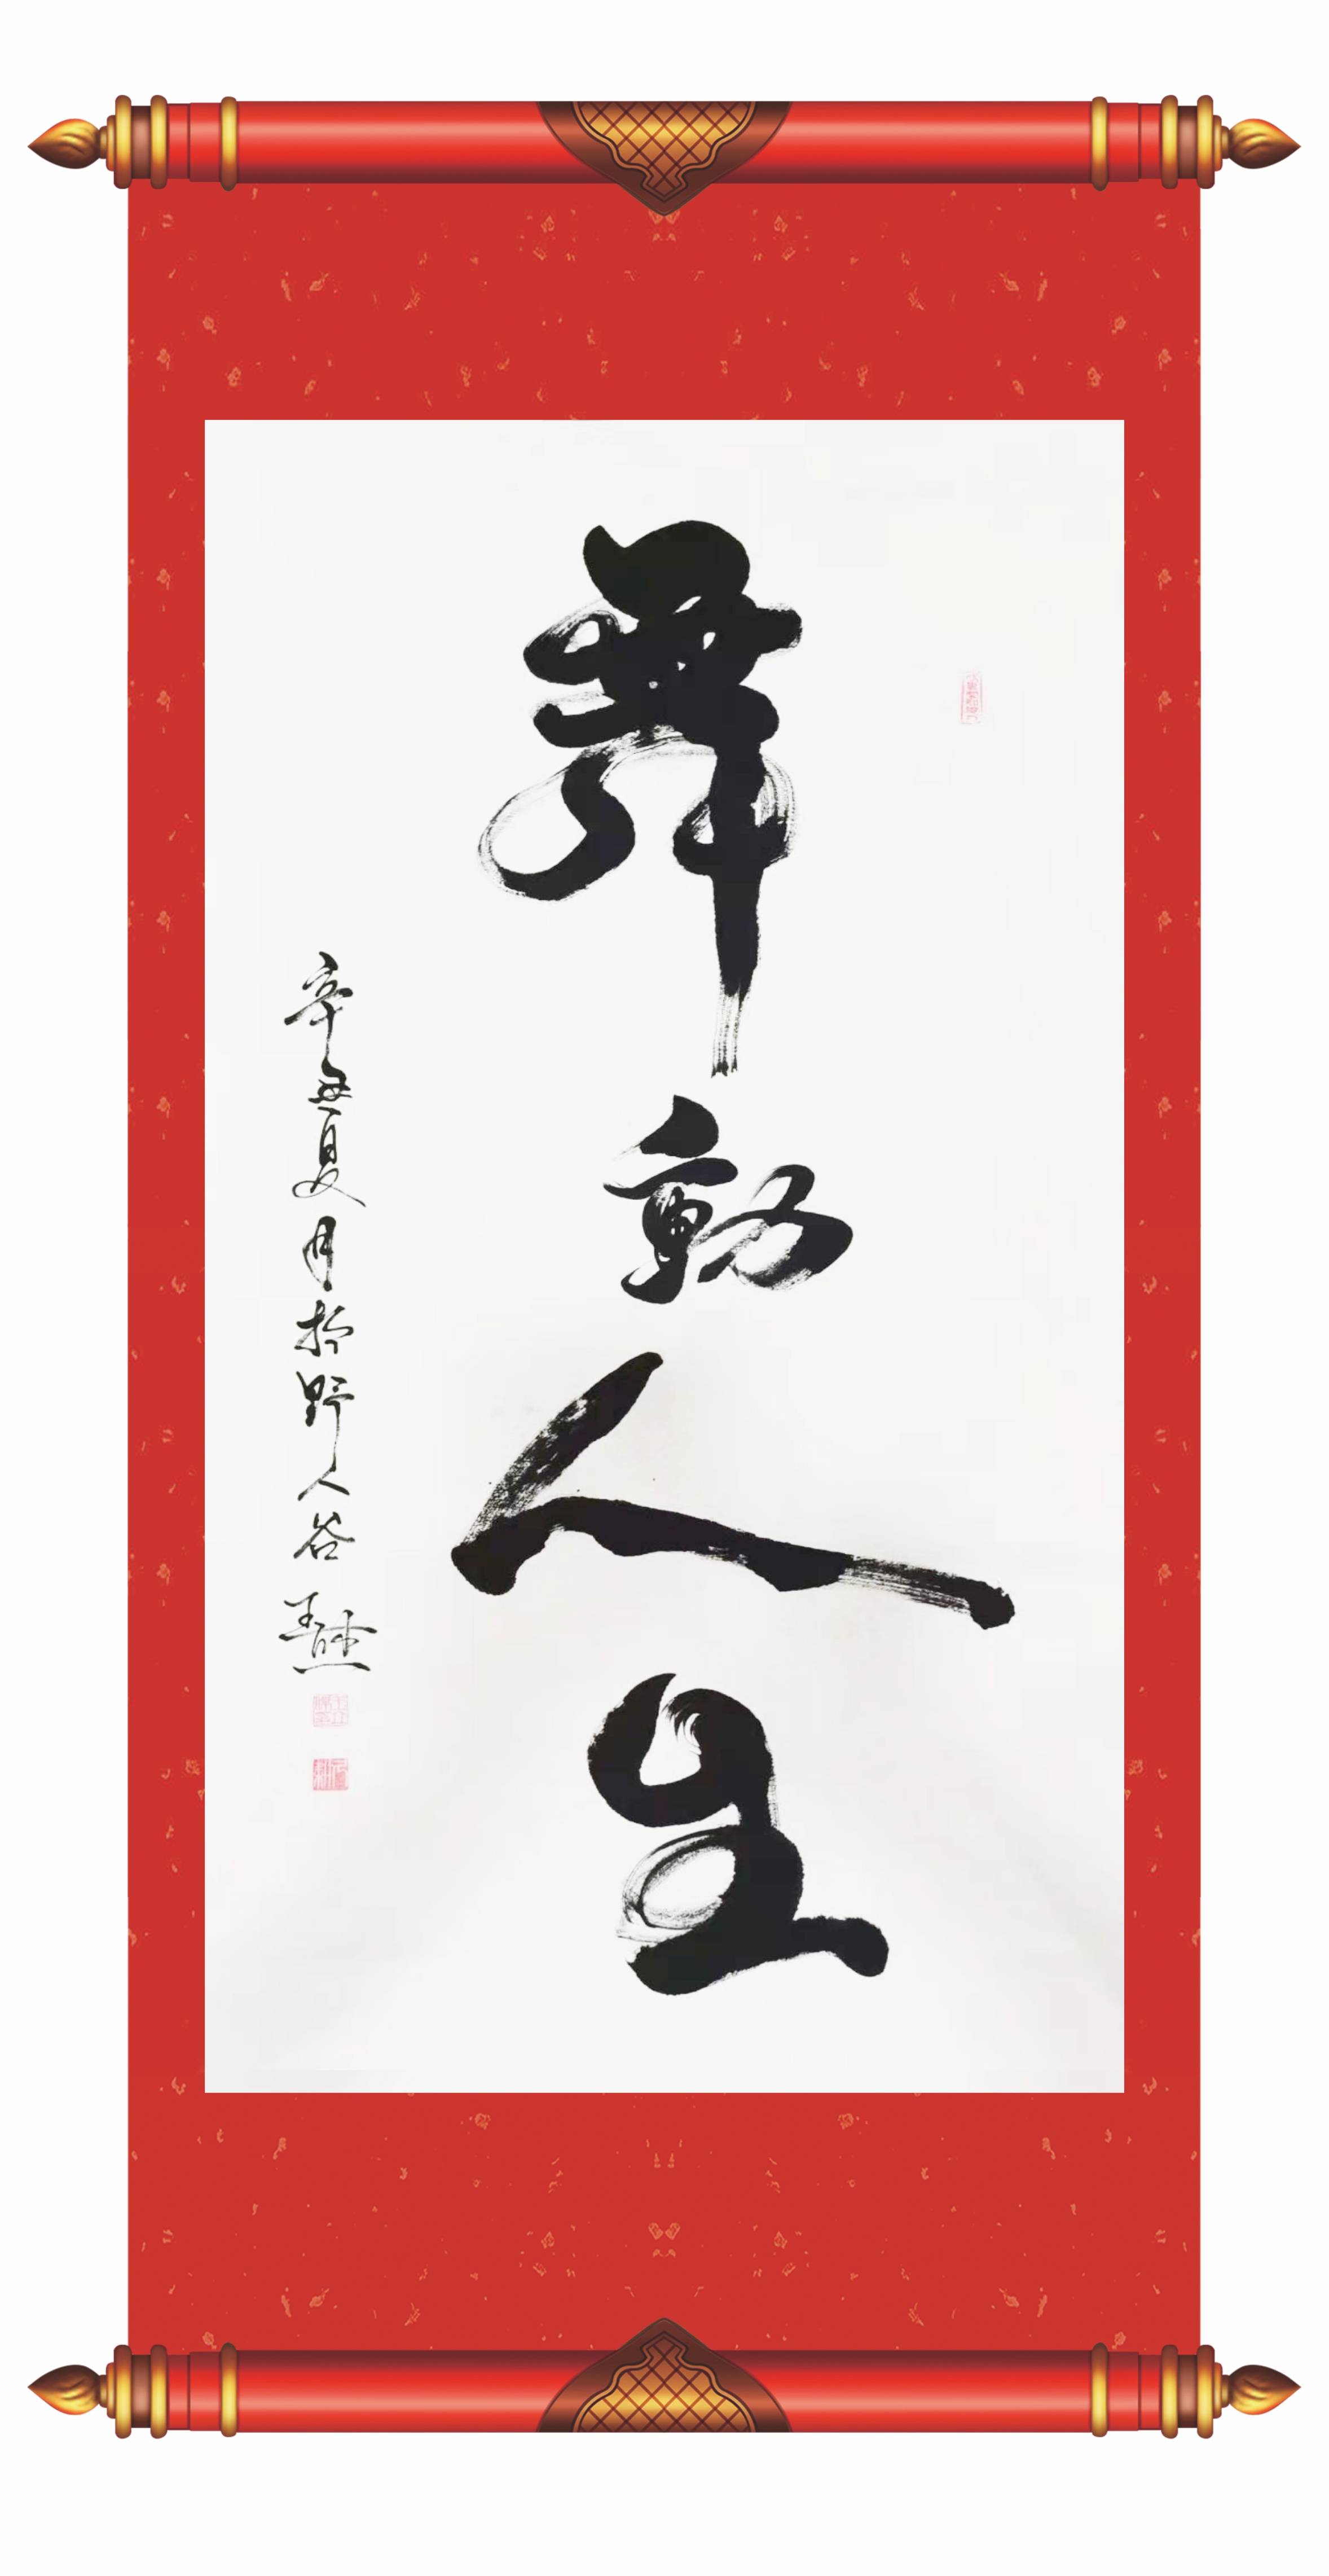 舞動人生
辛丑夏月於野人谷